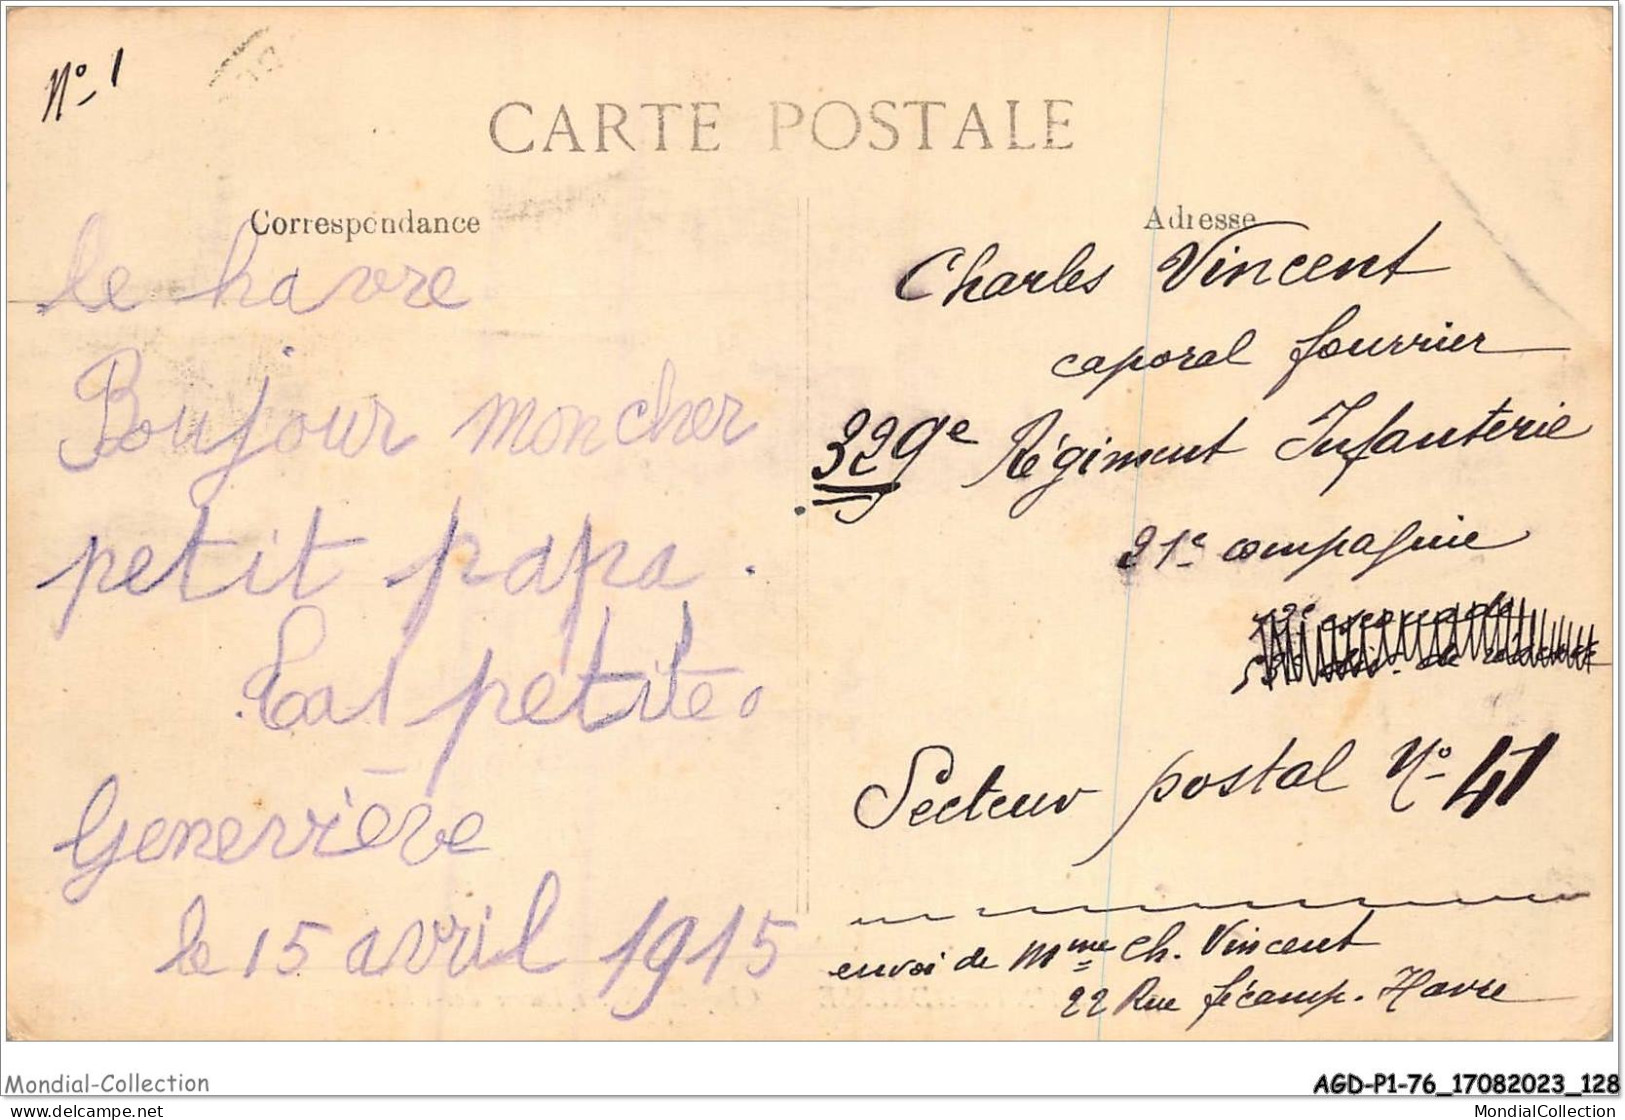 N° 1
CARTE POSTALE
Correspondance
le havre
Boujour mon cher
petit papa.
Ta petite
Geneviève
le 15 avril 1915
Adresse
Charles Vincent
caporal fourrier
329e Régiment Infanterie
21e compagnie
Secteur postal N° 41
envoi de Mme Ch. Vincent
22 Rue fécamp. Havre
Mondial-Collection
AGD-P1-76_17082023_128
delcampe.net
MondialCollection